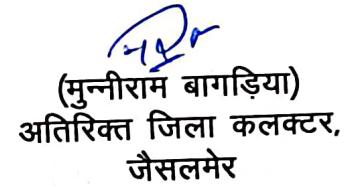 (मुन्नीराम बागड़िया)
अतिरिक्त जिला कलक्टर,
जैसलमेर